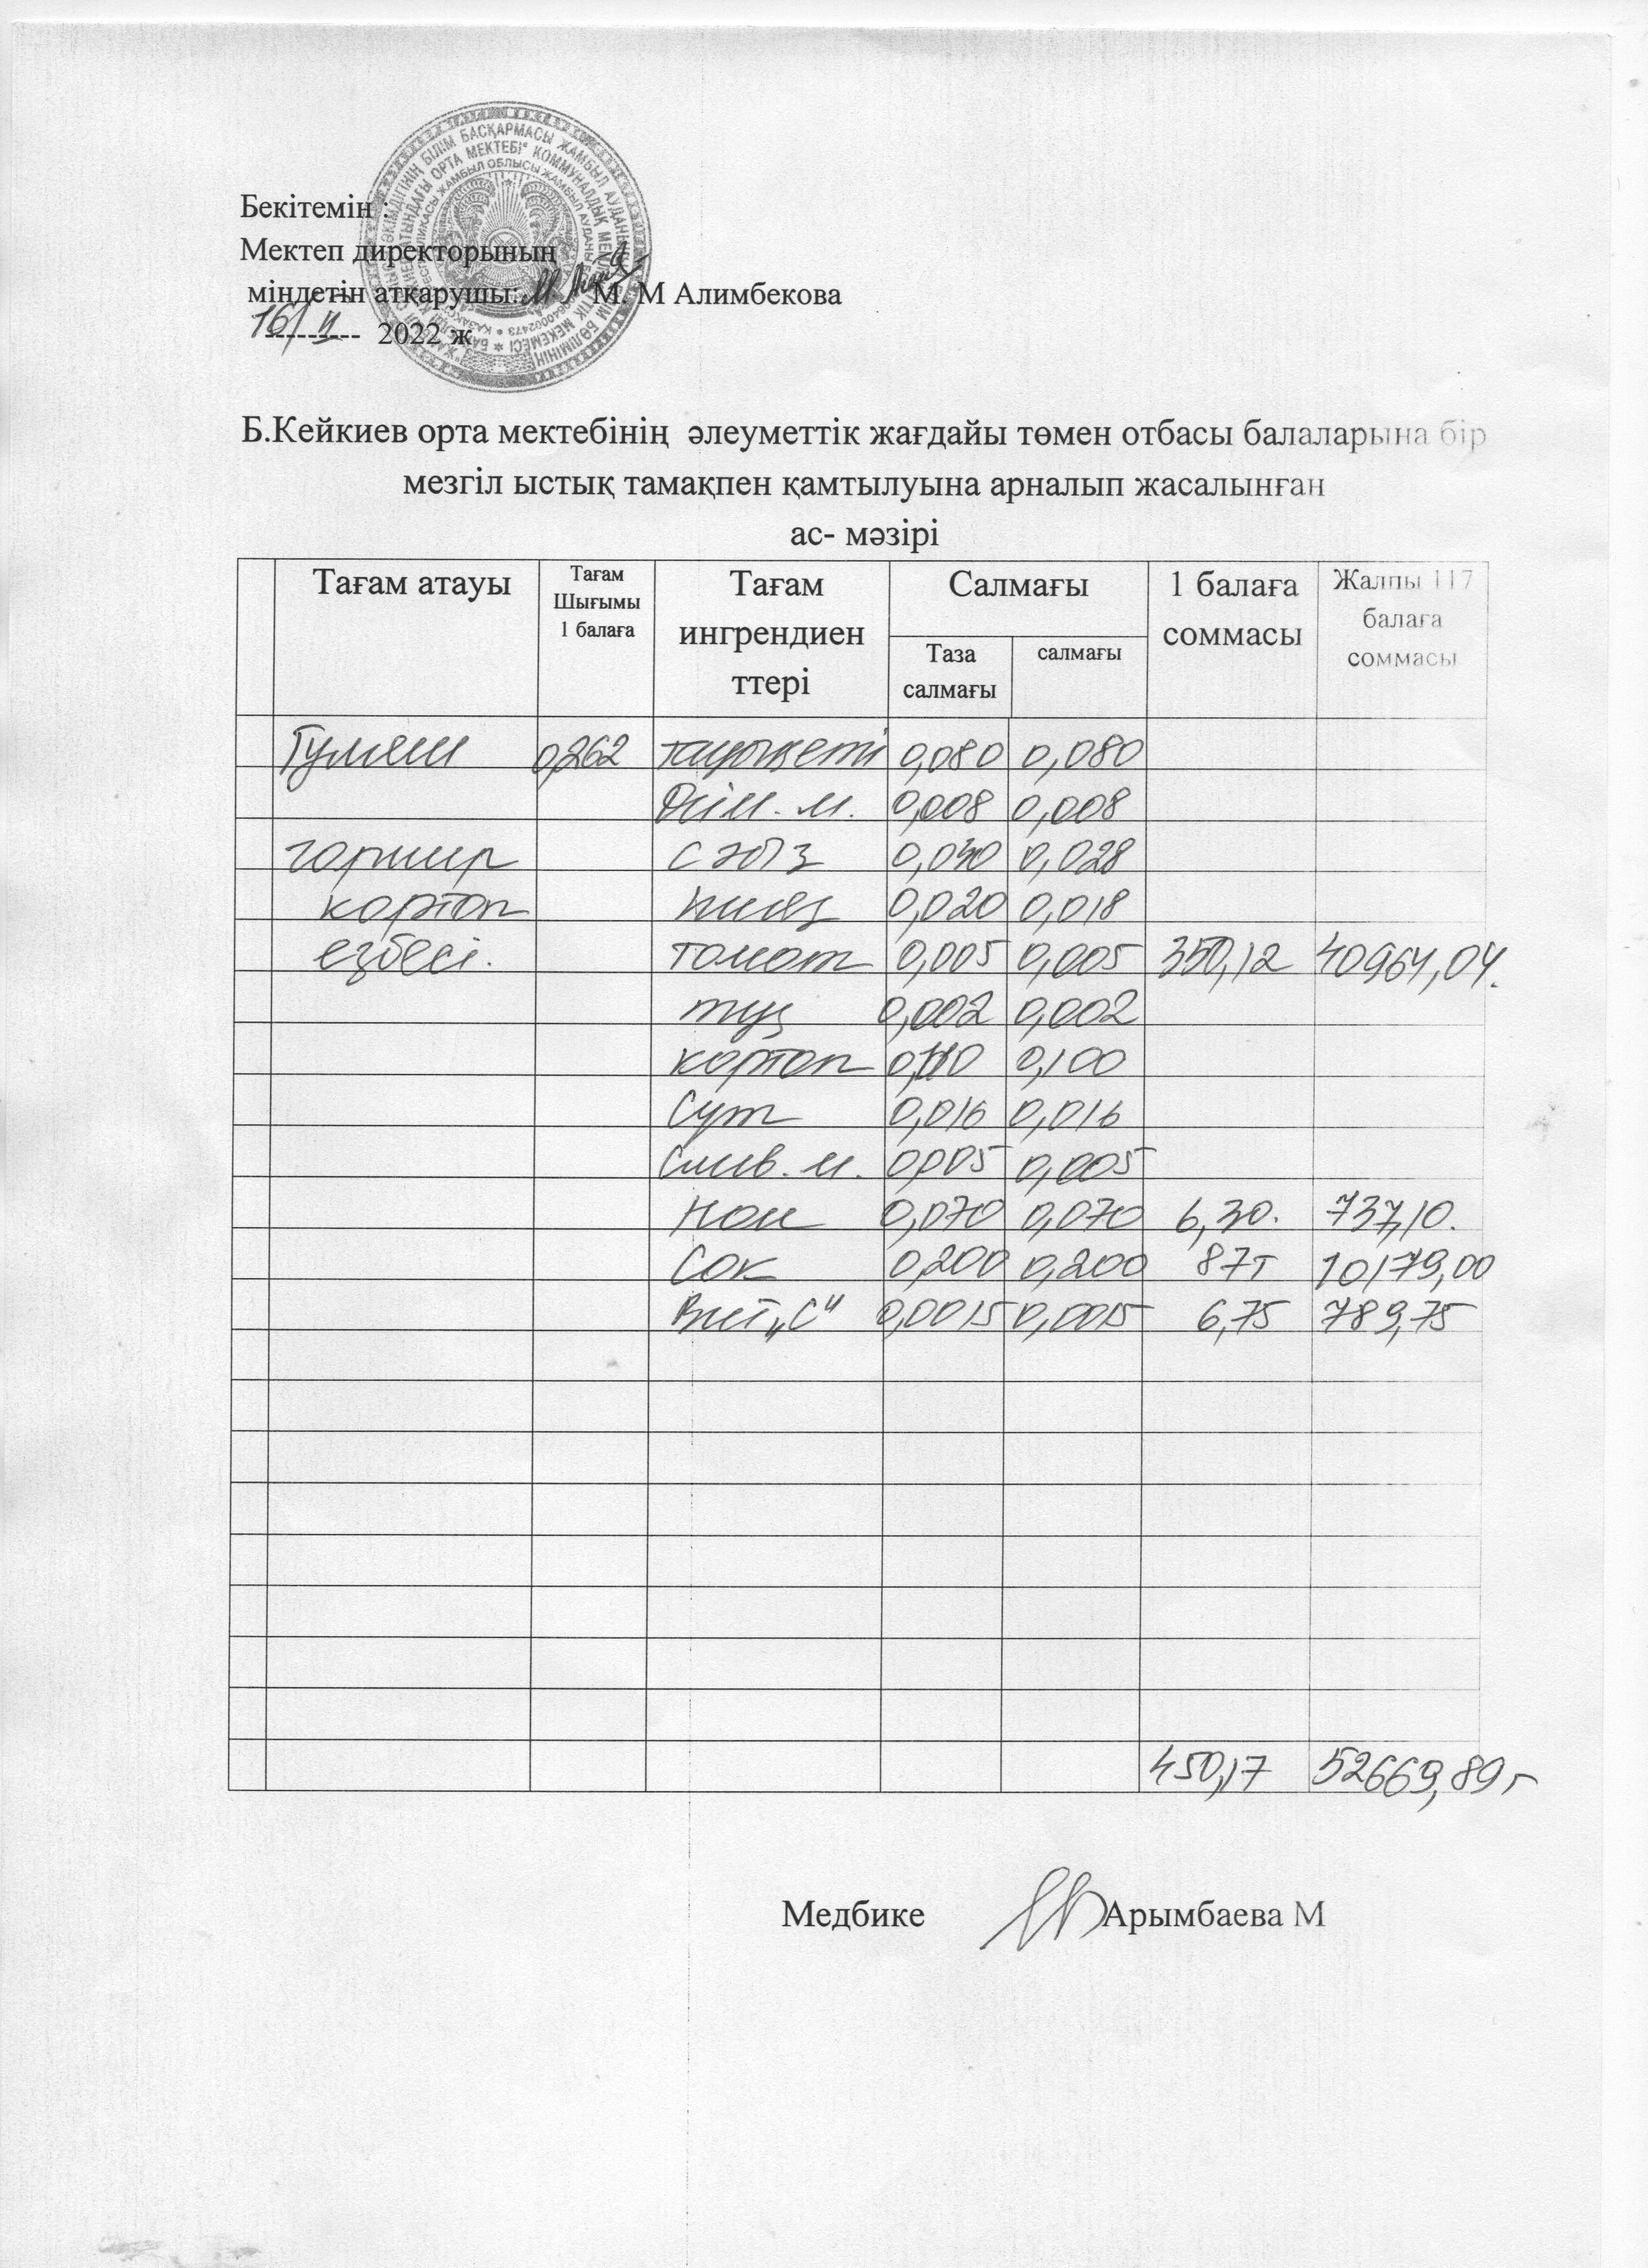 Бекітемін :
Мектеп директорының
міндетін атқарушы: М. М Алимбекова
16/ II 2022 ж
Б.Кейкиев орта мектебінің әлеуметтік жағдайы төмен отбасы балаларына бір
мезгіл ыстық тамақпен қамтылуына арналып жасалынған
ас- мәзірі
Тағам атауы Тағам Шығымы 1 балаға Тағам ингрендиен ттері Салмағы Таза салмағы салмағы 1 балаға соммасы Жалпы 117 балаға соммасы
Гуляш 0,262 тауық еті 0,080 0,080
Өсім. м. 0,008 0,008
гарнир сәбіз 0,030 0,028
картоп пияз 0,020 0,018
езбесі. томат 0,005 0,005 350,12 40964,04.
тұз 0,002 0,002
картоп 0,100
Сүт 0,016 0,016
Слив. м. 0,005 0,005
Нан 0,070 0,070 6,30. 737,10.
Сок 0,200 0,200 87т 10179,00
Вит „С" 0,0015 0,0015 6,75 789,75
450,17 52669,89т
Медбике Арымбаева М